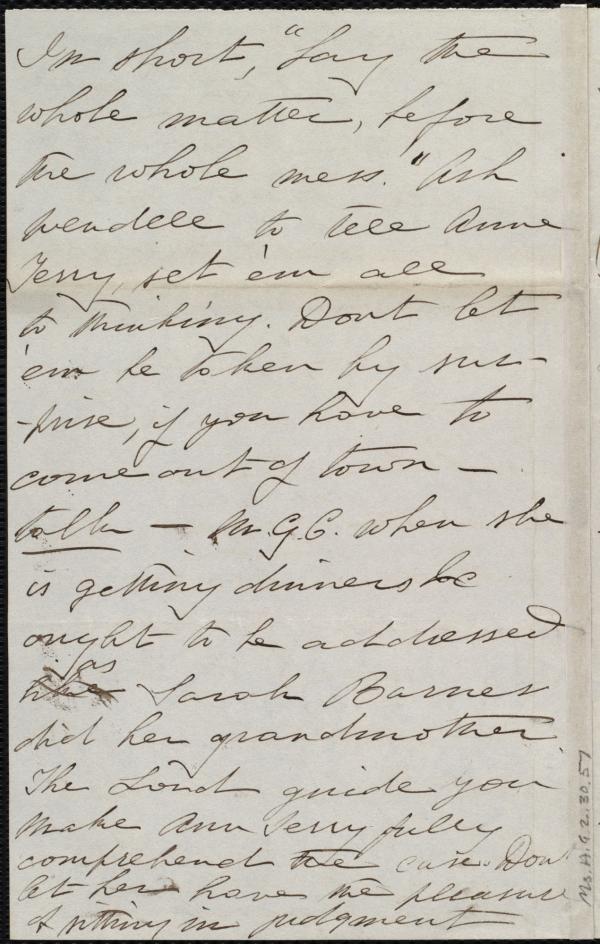 In short, "Lay the
whole matter, before
the whole mess." Ask
Wendell to tell Anne
Terry, set 'em all
to thinking. Dont let
'em be taken by sur-
-prise, if you have to
come out of town —
talk — M.G.C. when she
is getting dinners &c
ought to be addressed
as Sarah Barnes
did her grandmother.
The Lord guide you
Make Ann Terry fully
comprehend the case. Dont
let her have the pleasure
of sitting in judgment
Ms.A.9.2.30.57